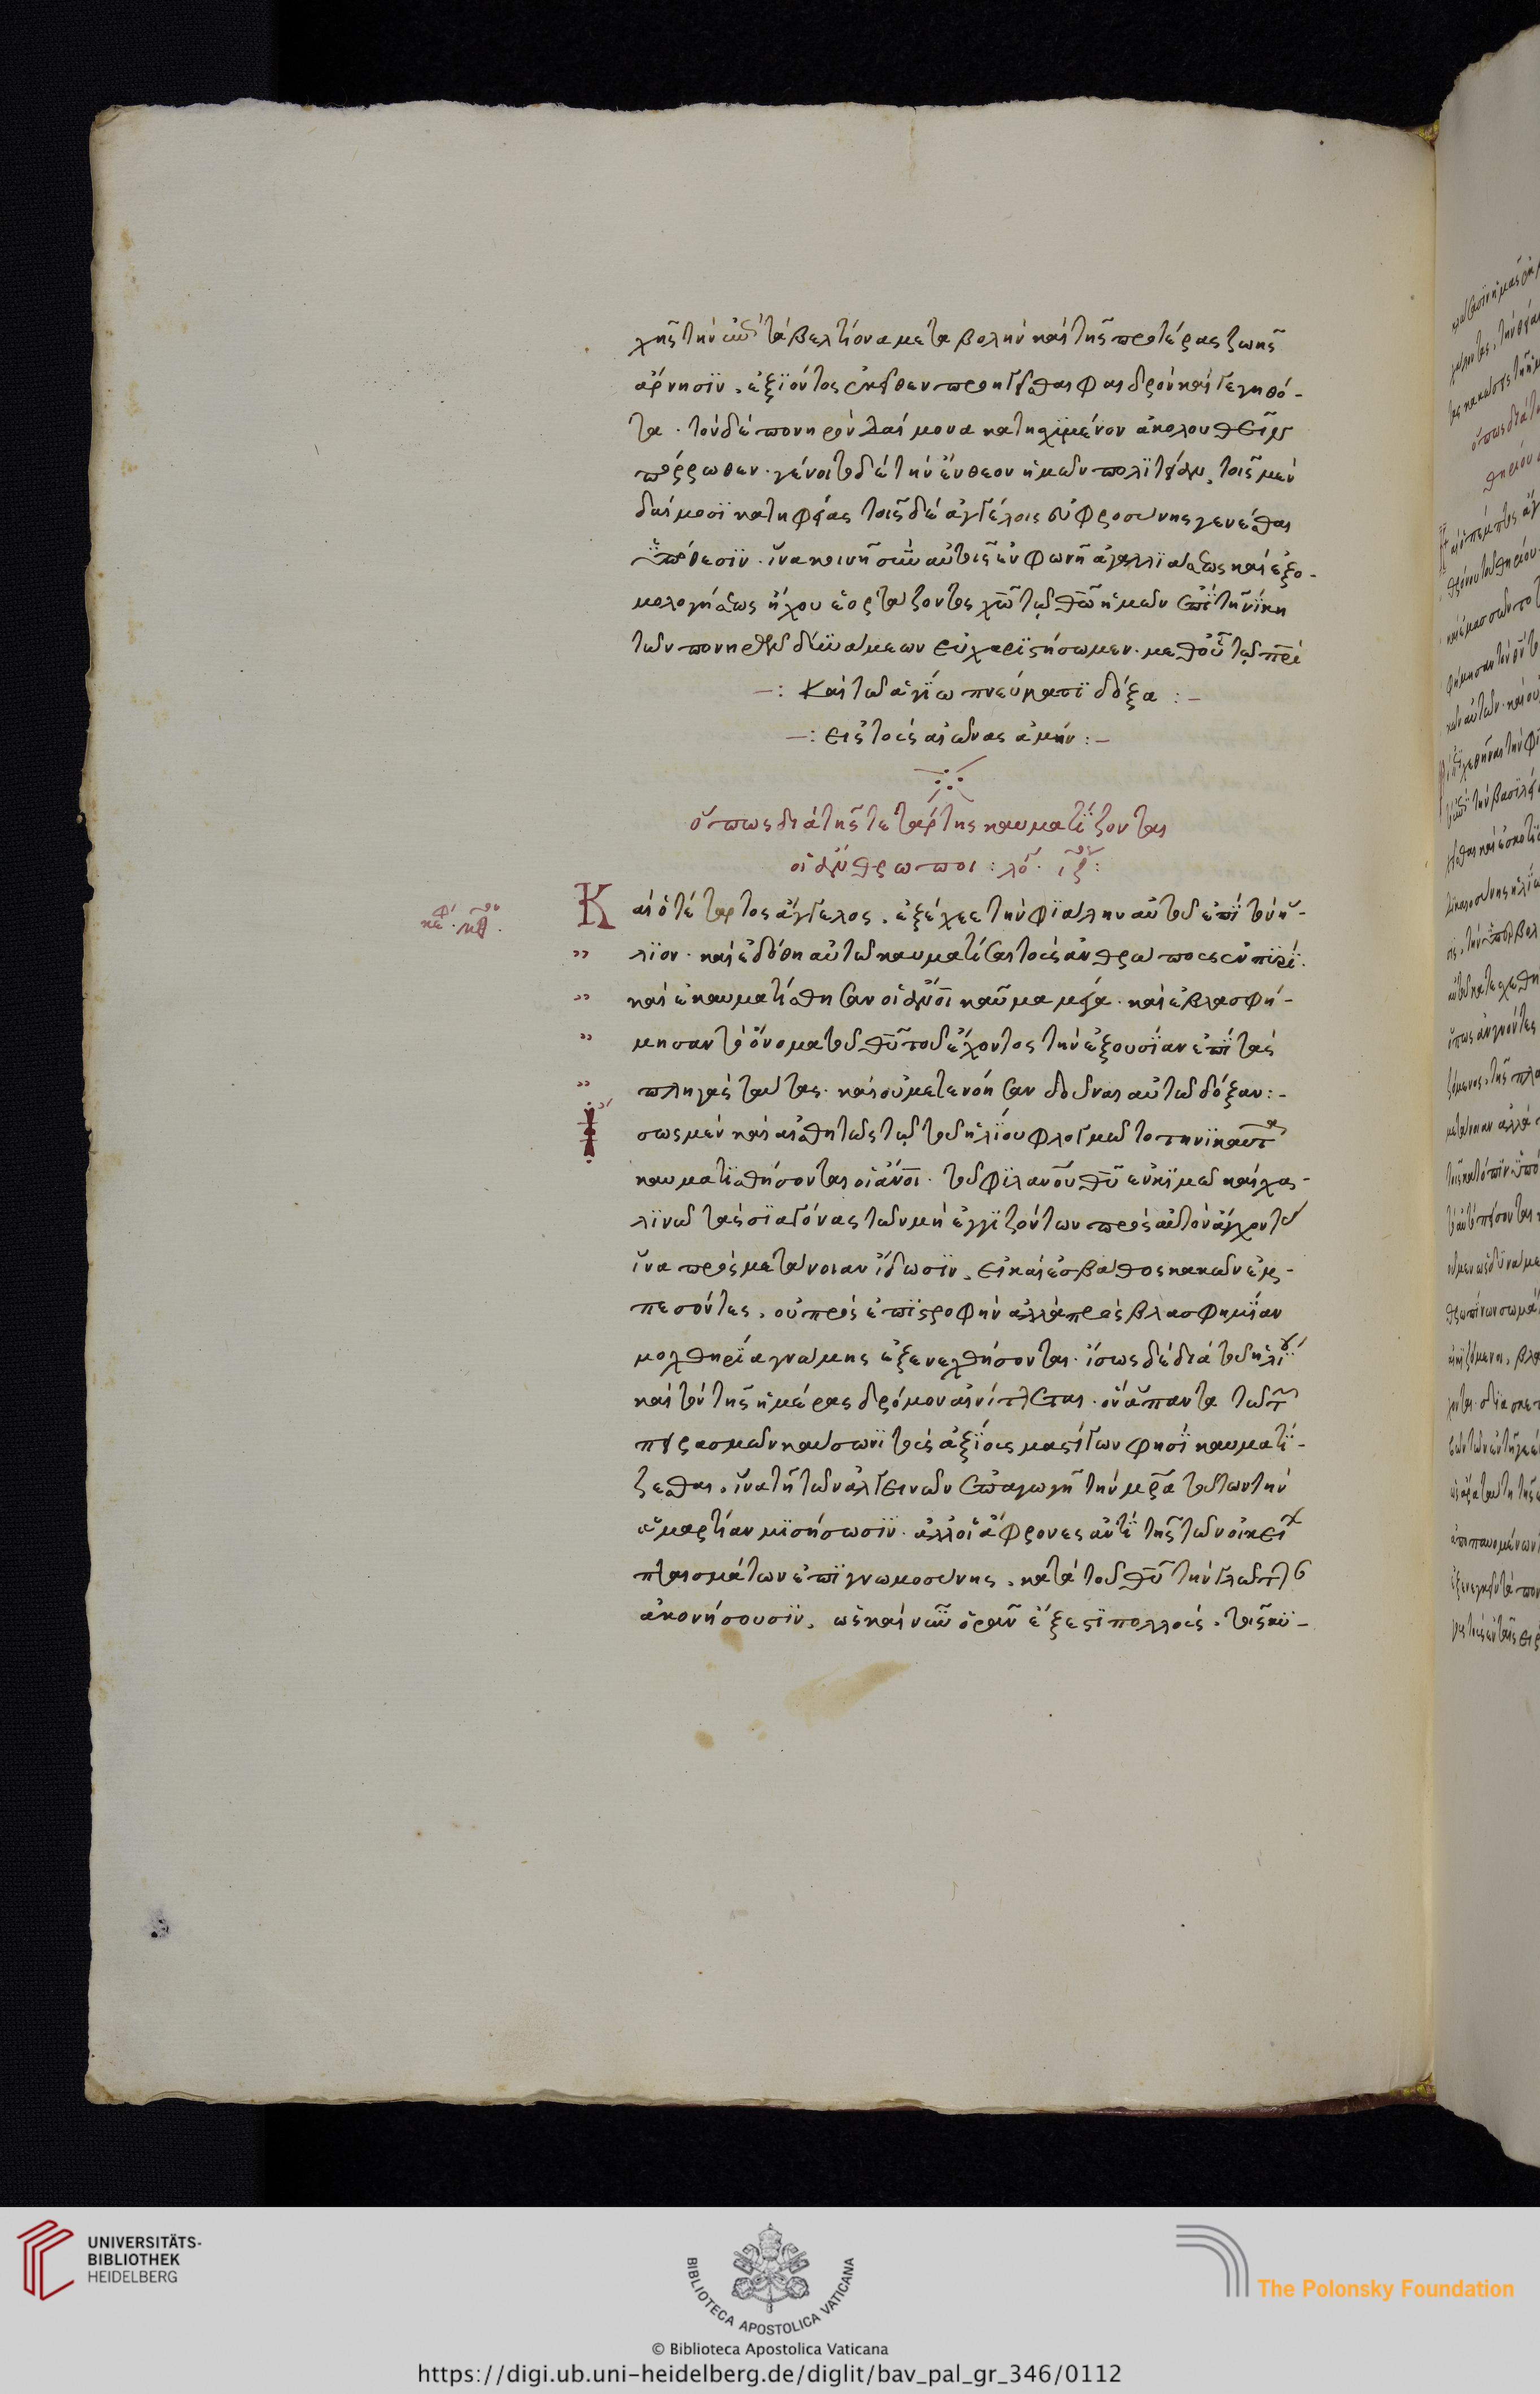 χῆς τὴν ἐπὶ τὰ βελτίονα μεταβολὴν καὶ τῆς προτέρας ζωῆς
ἄρνησϊν. ἐξϊόντος ἐκεῖθεν προηγεῖσθαι φαιδρὸν καὶ γεγηθό-
τα. τὸν δὲ πονηρὸν δαίμονα κατησχϊμένον ἀκολουθεῖν
πόρρωθεν. γένοιτο δὲ τὴν ἔνθεον ἡμῶν πολϊτείαν, τοῖς μὲν
δαίμοσϊ κατηφείας τοῖς δὲ ἀγγέλοις εὐφροσύνης γενέσθαι
ὑπόθεσϊν. ἵνα κοινῇ σὺν αὐτοῖς ἐν φωνῇ ἀγαλλϊάσεως καὶ ἐξο-
μολογήσεως ἤχου ἑορτάζοντες χῶ τῶ θῶ ἡμῶν ἐπὶ τῇ νίκῃ
τῶν πονηρῶν δυνάμεων εὐχαρϊστήσωμεν. μεθ' οὗ τῶ πρὶ
-: Καὶ τῶ ἁγίω πνεύματϊ δόξα :-
-: εἰς τοὺς αἰῶνας ἀμήν :-
ὅπως διὰ τῆς τετάρτης καυματίζονται
οἱ ἄνθρωποι : λό. ιϛ :
κεφ. μθ.
Καὶ ὁ τέταρτος ἄγγελος. ἐξέχεε τὴν φϊάλην αὐτοῦ ἐπὶ τὸν ἥ-
λϊον. καὶ ἐδόθη αὐτῶ καυματίσαι τοὺς ἀνθρώπους ἐν πϊρί.
καὶ ἐκαυματίσθησαν οἱ ἄνοι καῦμα μέγα. καὶ ἐβλασφή-
μησαν τὸ ὄνομα τοῦ θῦ τοῦ ἔχοντος τὴν ἐξουσίαν ἐπὶ τὰς
πληγὰς ταύτας. καὶ οὐ μετενόησαν δοῦναι αὐτῶ δόξαν :-
Ἴσως μὲν καὶ αἰσθητῶς τῶ τοῦ ἡλίου φλογμῶ το τηνϊκαῦτα
καυματϊσθήσονται οἱ ἄνοι. τοῦ φϊλανου θῦ ἐν κϊμῶ καὶ χα-
λϊνῶ τὰς σϊαγόνας τῶν μὴ ἐγγϊζόντων πρὸς αὐτὸν ἄγχοντος
ἵνα πρὸς μετάνοιαν ἴδωσϊν. εἰ καὶ ἐς βάθος κακῶν ἐμ-
πεσόντες. οὐ πρὸς ἐπϊστροφὴν ἀλλὰ πρὸς βλασφημίαν
μοχθηρία γνώμης ἐξενεχθήσονται. ἴσως δὲ διὰ τοῦ ἡλίου
καὶ τὸν τῆς ἡμέρας δρόμον αἰνίττεται. ὃν ἅπαντα τῶ τῶν
πειρασμῶν καύσωνϊ τοὺς ἀξίους μαστίγων φησὶ καυματί-
ζεσθαι. ἵνα τῇ τῶν ἀλγεινῶν ἐπαγωγῇ τὴν μρα τούτων τὴν
ἁμαρτίαν μϊσήσωσϊν. ἀλλ' οἱ ἄφρονες ἀντὶ τῆς τῶν οἰκείων
πταισμάτων ἐπϊγνωμοσύνης. κατὰ τοῦ θῦ τὴν γλῶτταν
ἀκονήσουσϊν. ὡς καὶ νῦν ὁρᾶν ἔξεστϊ πολλούς. τοῖς κϋ-
UNIVERSITÄTS-
BIBLIOTHEK
HEIDELBERG
BIBLIOTECA APOSTOLICA VATICANA
The Polonsky Foundation
© Biblioteca Apostolica Vaticana
https://digi.ub.uni-heidelberg.de/diglit/bav_pal_gr_346/0112